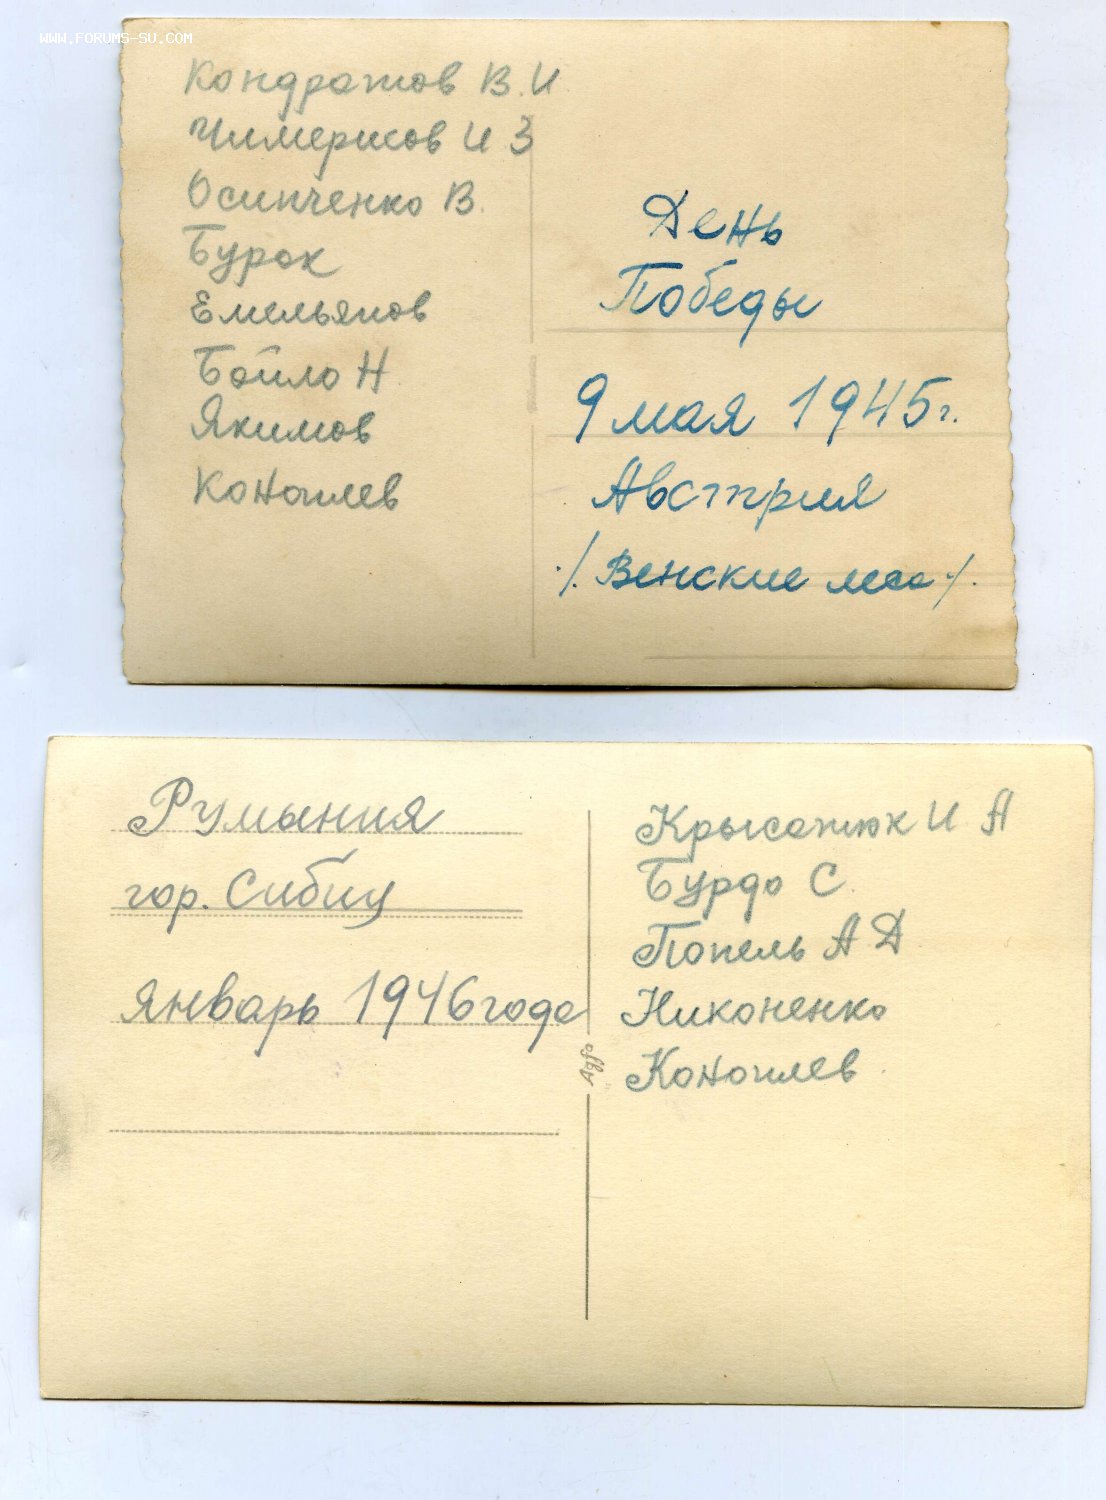 WWW.FORUMS-SU.COM
Кондратов В.И
Чимерисов И З
Осипченко В.
Бурак
Емельянов
Бойло Н
Якимов
Коноплев
День
Победы
9 мая 1945 г.
Австрия
/Венские леса/.
Румыния
гор. Сибиу
январь 1946 года
Крысатюк И А
Бурдо С.
Попель А Д
Никоненко
Коноплев